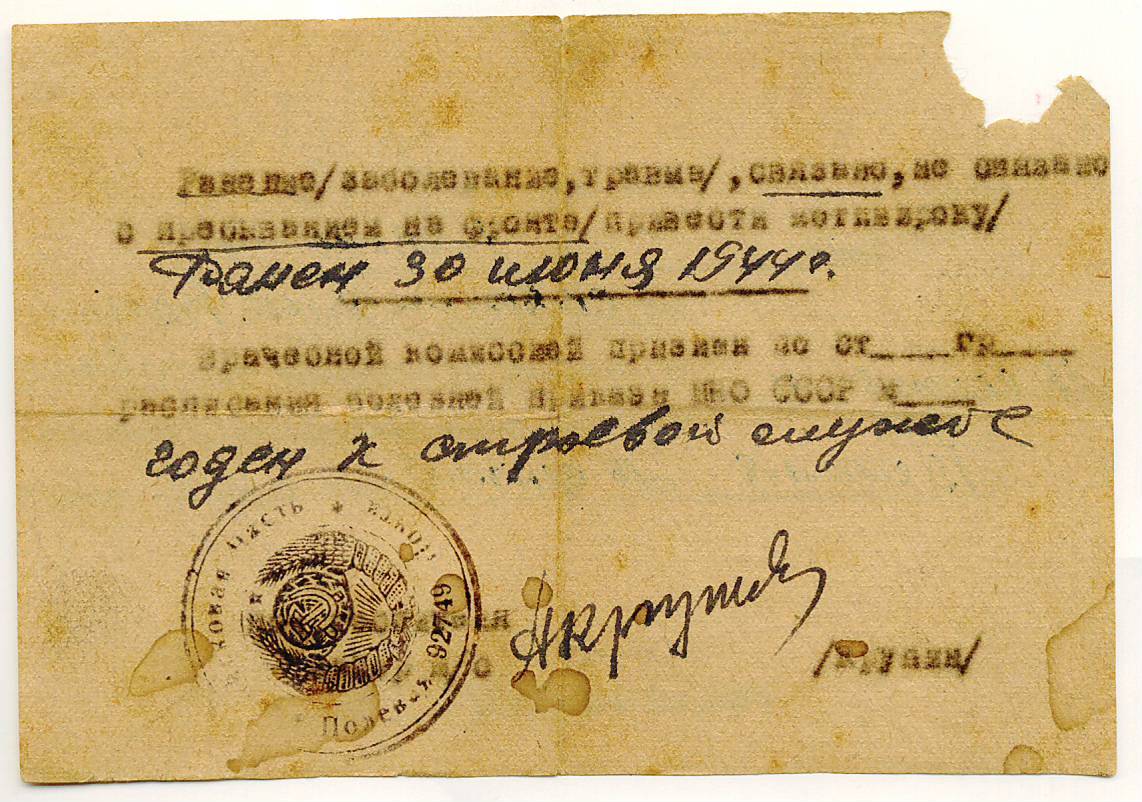 Ранение/заболевание, травма/, связано, не связано
с пребыванием на фронте/привести мотивировку/
Ранен 30 июня 1944 г.
Врачебной комиссией признан по ст____гр____
расписания болезней приказа НКО СССР №____
годен к строевой службе
Полевая 92749